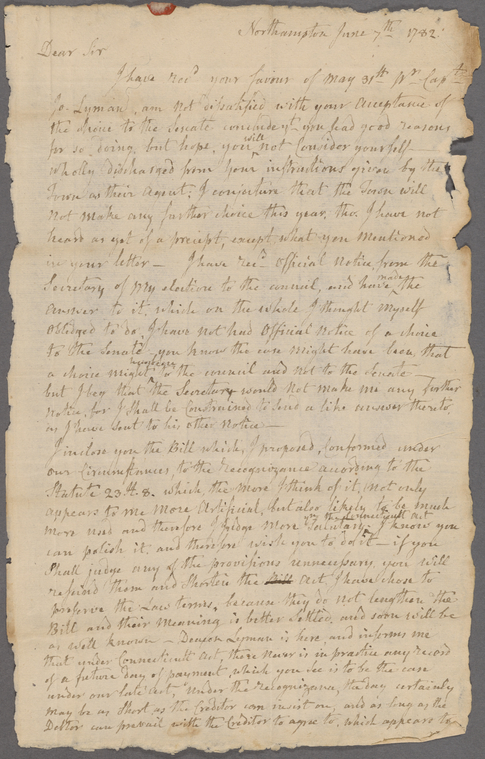 Northampton June 7th 1782.
Dear Sir
I have recd your favour of May 31st pr Capt
Jo. Lyman, am not dissatisfied with your acceptance of
the choice to the Senate conclude yt you had good reasons
for so doing, but hope, you will not Consider yourself
wholly discharged from your instructions given by the
Town as their Agent; I conjecture that the Town will
not make any farther choice this year, tho. I have not
heard as yet of a precipt, except what you mentioned
in your letter — I have recd Official Notice from the
Secretary of my election to the council, and have made the
answer to it, which on the whole I thought myself
obliged to do, I have not had Official Notice of a choice
to the Senate, you know the case might have been, that
a choice might to the council and not to the Senate
but I beg that the Secretary would not make me any further
notice, for I shall be Constrained to send a like answer thereto
as I have sent to his other notice —
I inclose you the Bill which, I proposed, Conformed under
our Circumstances, to the Recognizance according to the
Statute 23. H. 8. which, the more I think of it, not only
appears to me more Artificial, but also likely to be much
more used and therefore I judge more Salutary yn the Connecticutt act, I know you
can polish it, and therefore wish you to do it — if you
shall judge any of the provisions unnecessary you will
rescind them and Shorten the Bill Act I have chose to
preserve the Law terms, because they do not lengthen the
Bill and their Meaning is better Settled, and soon will be
as well known — Deacon Lyman is here and informs me
that under Connecticutt Act, there never is in practice any record
of a future day of payment, which you see is to be the case
under our late Act, under the Recognizance, the day certainly
may be as short as the Creditor can insist on, and as long as the
Debtor can prevail with the Creditor to agree to, which appears to